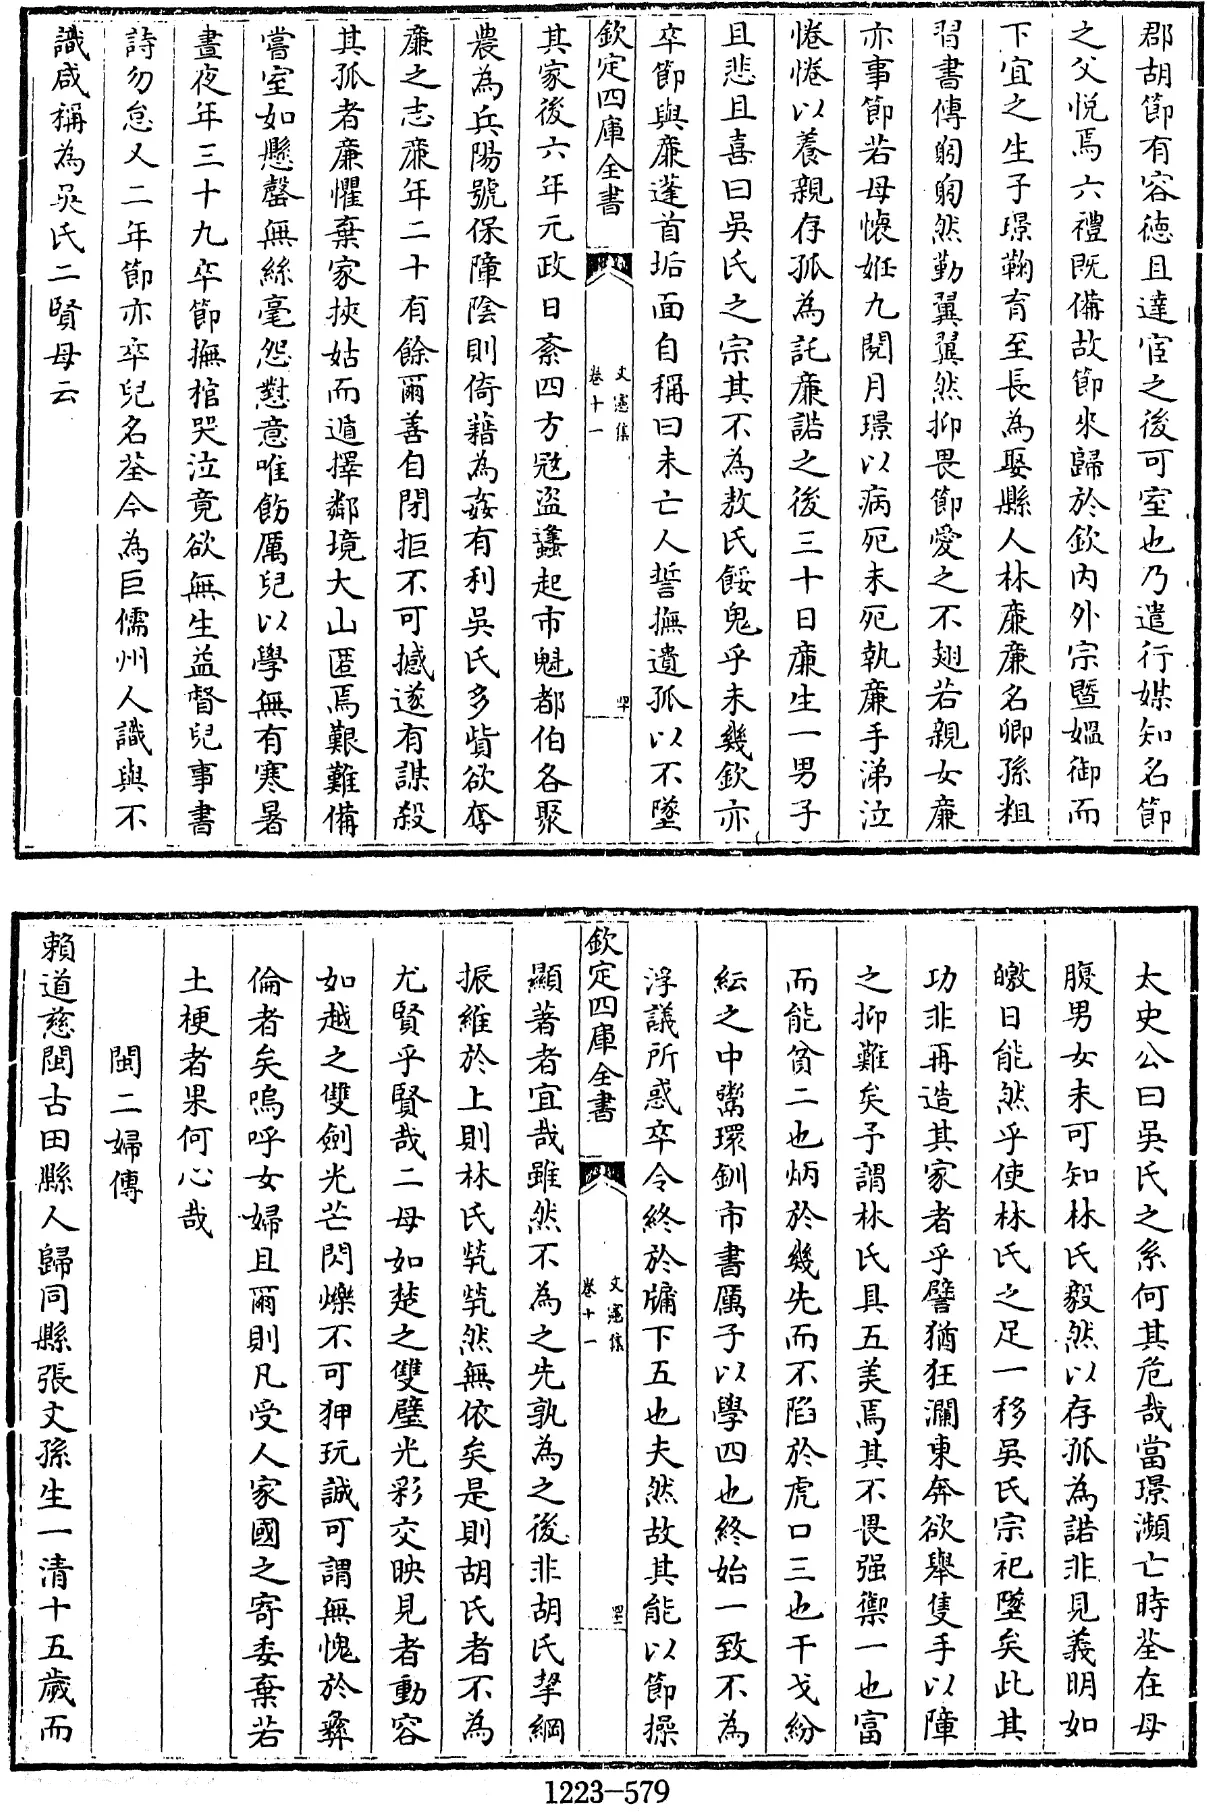 郡胡節有容德且達宦之後可室也乃遣行媒知名節
之父悅焉六禮既備故節來歸於欽内外宗暨媼御而
下宜之生子璟鞠育至長為娶縣人林㢘㢘名卿孫粗
習書傳躬躬然勤翼翼然抑畏節愛之不翅若親女㢘
亦事節若母懷姙九閱月璟以病死未死執㢘手涕泣
惓惓以養親存孤為託㢘諾之後三十日㢘生一男子
且悲且喜曰吳氏之宗其不為敖氏餒鬼乎未幾欽亦
卒節與㢘蓬首垢面自稱曰未亡人誓撫遺孤以不墜
欽定四庫全書
文憲集
卷十一
其家後六年元政日紊四方冦盗蠭起市魁都伯各聚
農為兵陽號保障陰則倚藉為姦有利吳氏多貲欲奪
㢘之志㢘年二十有餘爾善自閉拒不可撼遂有謀殺
其孤者㢘懼棄家挾姑而遁擇鄰境大山匿焉艱難備
嘗室如懸罄無絲毫怨懟意唯飭厲兒以學無有寒暑
晝夜年三十九卒節撫棺哭泣竟欲無生益督兒事書
詩勿怠又二年節亦卒兒名荃今為巨儒州人識與不
識咸稱為吳氏二賢母云
太史公曰吳氏之系何其危哉當璟瀕亡時荃在母
腹男女未可知林氏毅然以存孤為諾非見義明如
皦日能然乎使林氏之足一移吳氏宗祀墜矣此其
功非再造其家者乎譬猶狂瀾東奔欲舉隻手以障
之抑難矣予謂林氏具五美焉其不畏强禦一也富
而能貧二也炳於幾先而不陷於虎口三也干戈紛
紜之中鬻環釧市書厲子以學四也終始一致不為
浮議所惑卒令終於牖下五也夫然故其能以節操
欽定四庫全書
文憲集
卷十一
顯著者宜哉雖然不為之先孰為之後非胡氏挈綱
振維於上則林氏煢煢然無依矣是則胡氏者不為
尤賢乎賢哉二母如楚之雙璧光彩交映見者動容
如越之雙劍光芒閃爍不可狎玩誠可謂無愧於彞
倫者矣嗚呼女婦且爾則凡受人家國之寄委棄若
土梗者果何心哉
閩二婦傳
賴道慈閩古田縣人歸同縣張文孫生一清十五歲而
1223-579